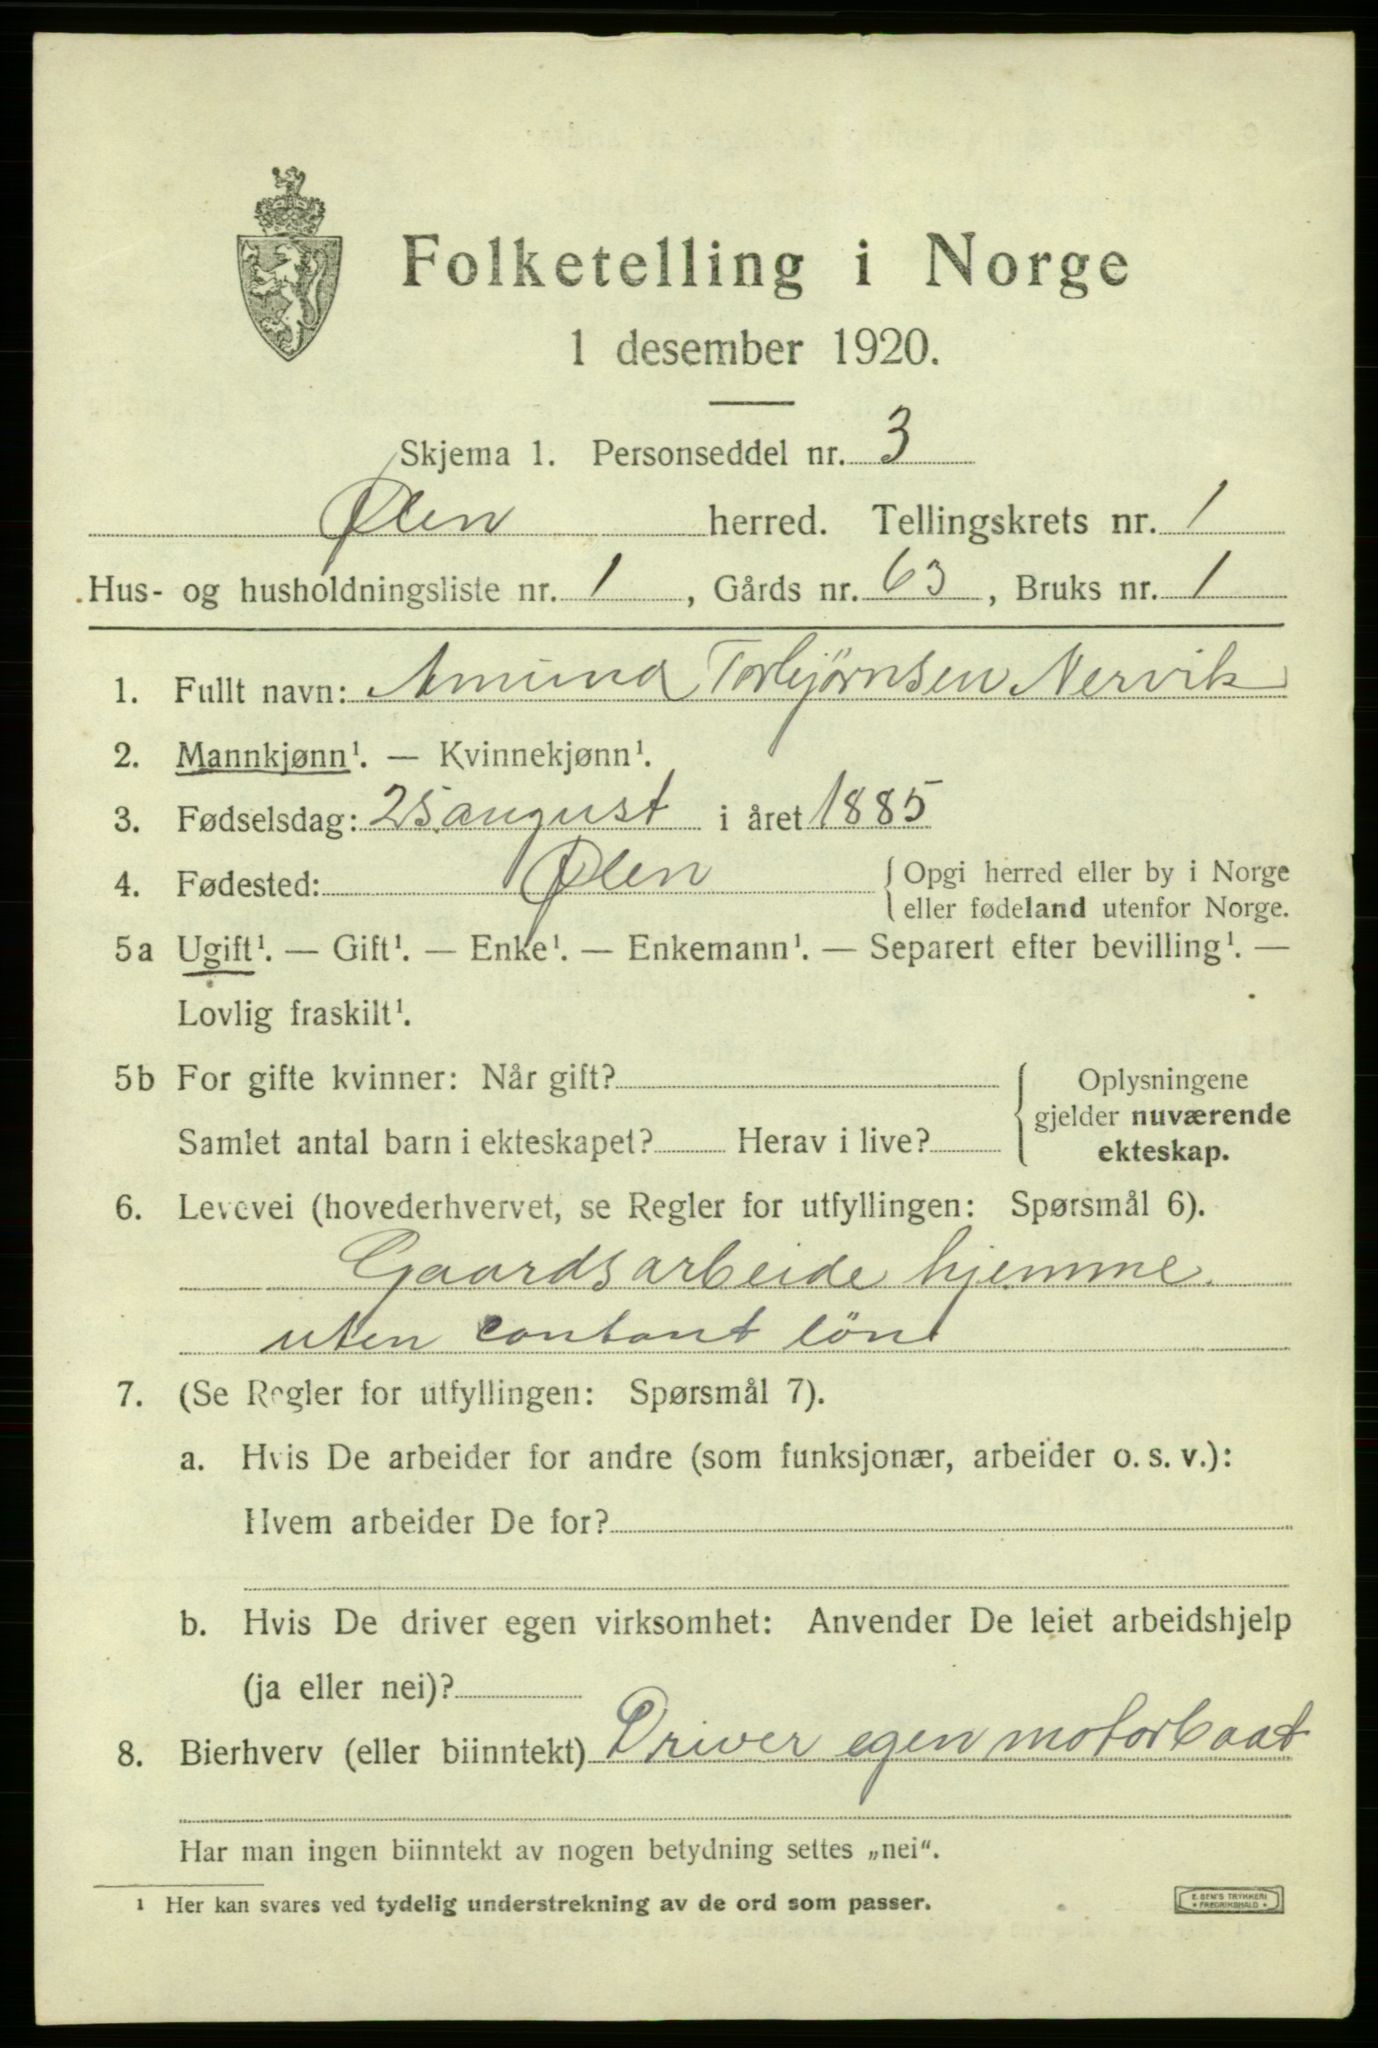 Folketelling i Norge
1 desember 1920.
Skjema 1. Personseddel nr. 3
Ølen herred. Tellingskrets nr. 1
Hus- og husholdningsliste nr. 1, Gårds nr. 63, Bruks nr. 1
1. Fullt navn: Amund Torbjørnsen Nervik
2. Mannkjønn¹. — Kvinnekjønn¹.
3. Fødselsdag: 25 august i året 1885
4. Fødested: Ølen { Opgi herred eller by i Norge
eller fødeland utenfor Norge.
5a Ugift¹. — Gift¹. — Enke¹. — Enkemann¹. — Separert efter bevilling¹. —
Lovlig fraskilt¹.
5b For gifte kvinner: Når gift? { Oplysningene
gjelder nuværende
Samlet antal barn i ekteskapet? Herav i live? ekteskap.
6. Levevei (hovederhvervet, se Regler for utfyllingen: Spørsmål 6).
Gaardsarbeide hjemme
uten contant lön
7. (Se Regler for utfyllingen: Spørsmål 7).
a. Hvis De arbeider for andre (som funksjonær, arbeider o. s. v.):
Hvem arbeider De for?
b. Hvis De driver egen virksomhet: Anvender De leiet arbeidshjelp
(ja eller nei)?
8. Bierhverv (eller biinntekt) Driver egen motorbaat
Har man ingen biinntekt av nogen betydning settes „nei“.
¹ Her kan svares ved tydelig understrekning av de ord som passer.
E. SEM'S TRYKKERI
* FREDRIKSHALD *